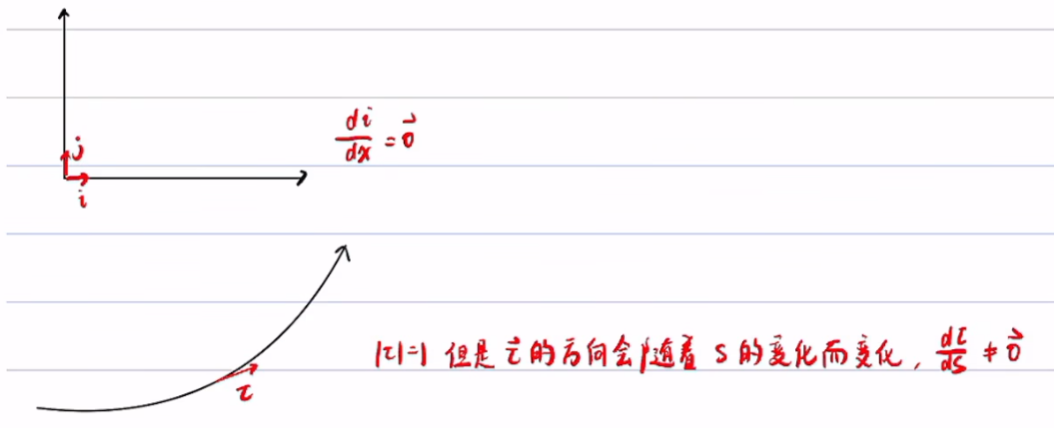 di/dx = 0⃗
j
i
|τ|=1 但是 τ⃗ 的方向会随着 s 的变化而变化, dτ/ds ≠ 0⃗
τ